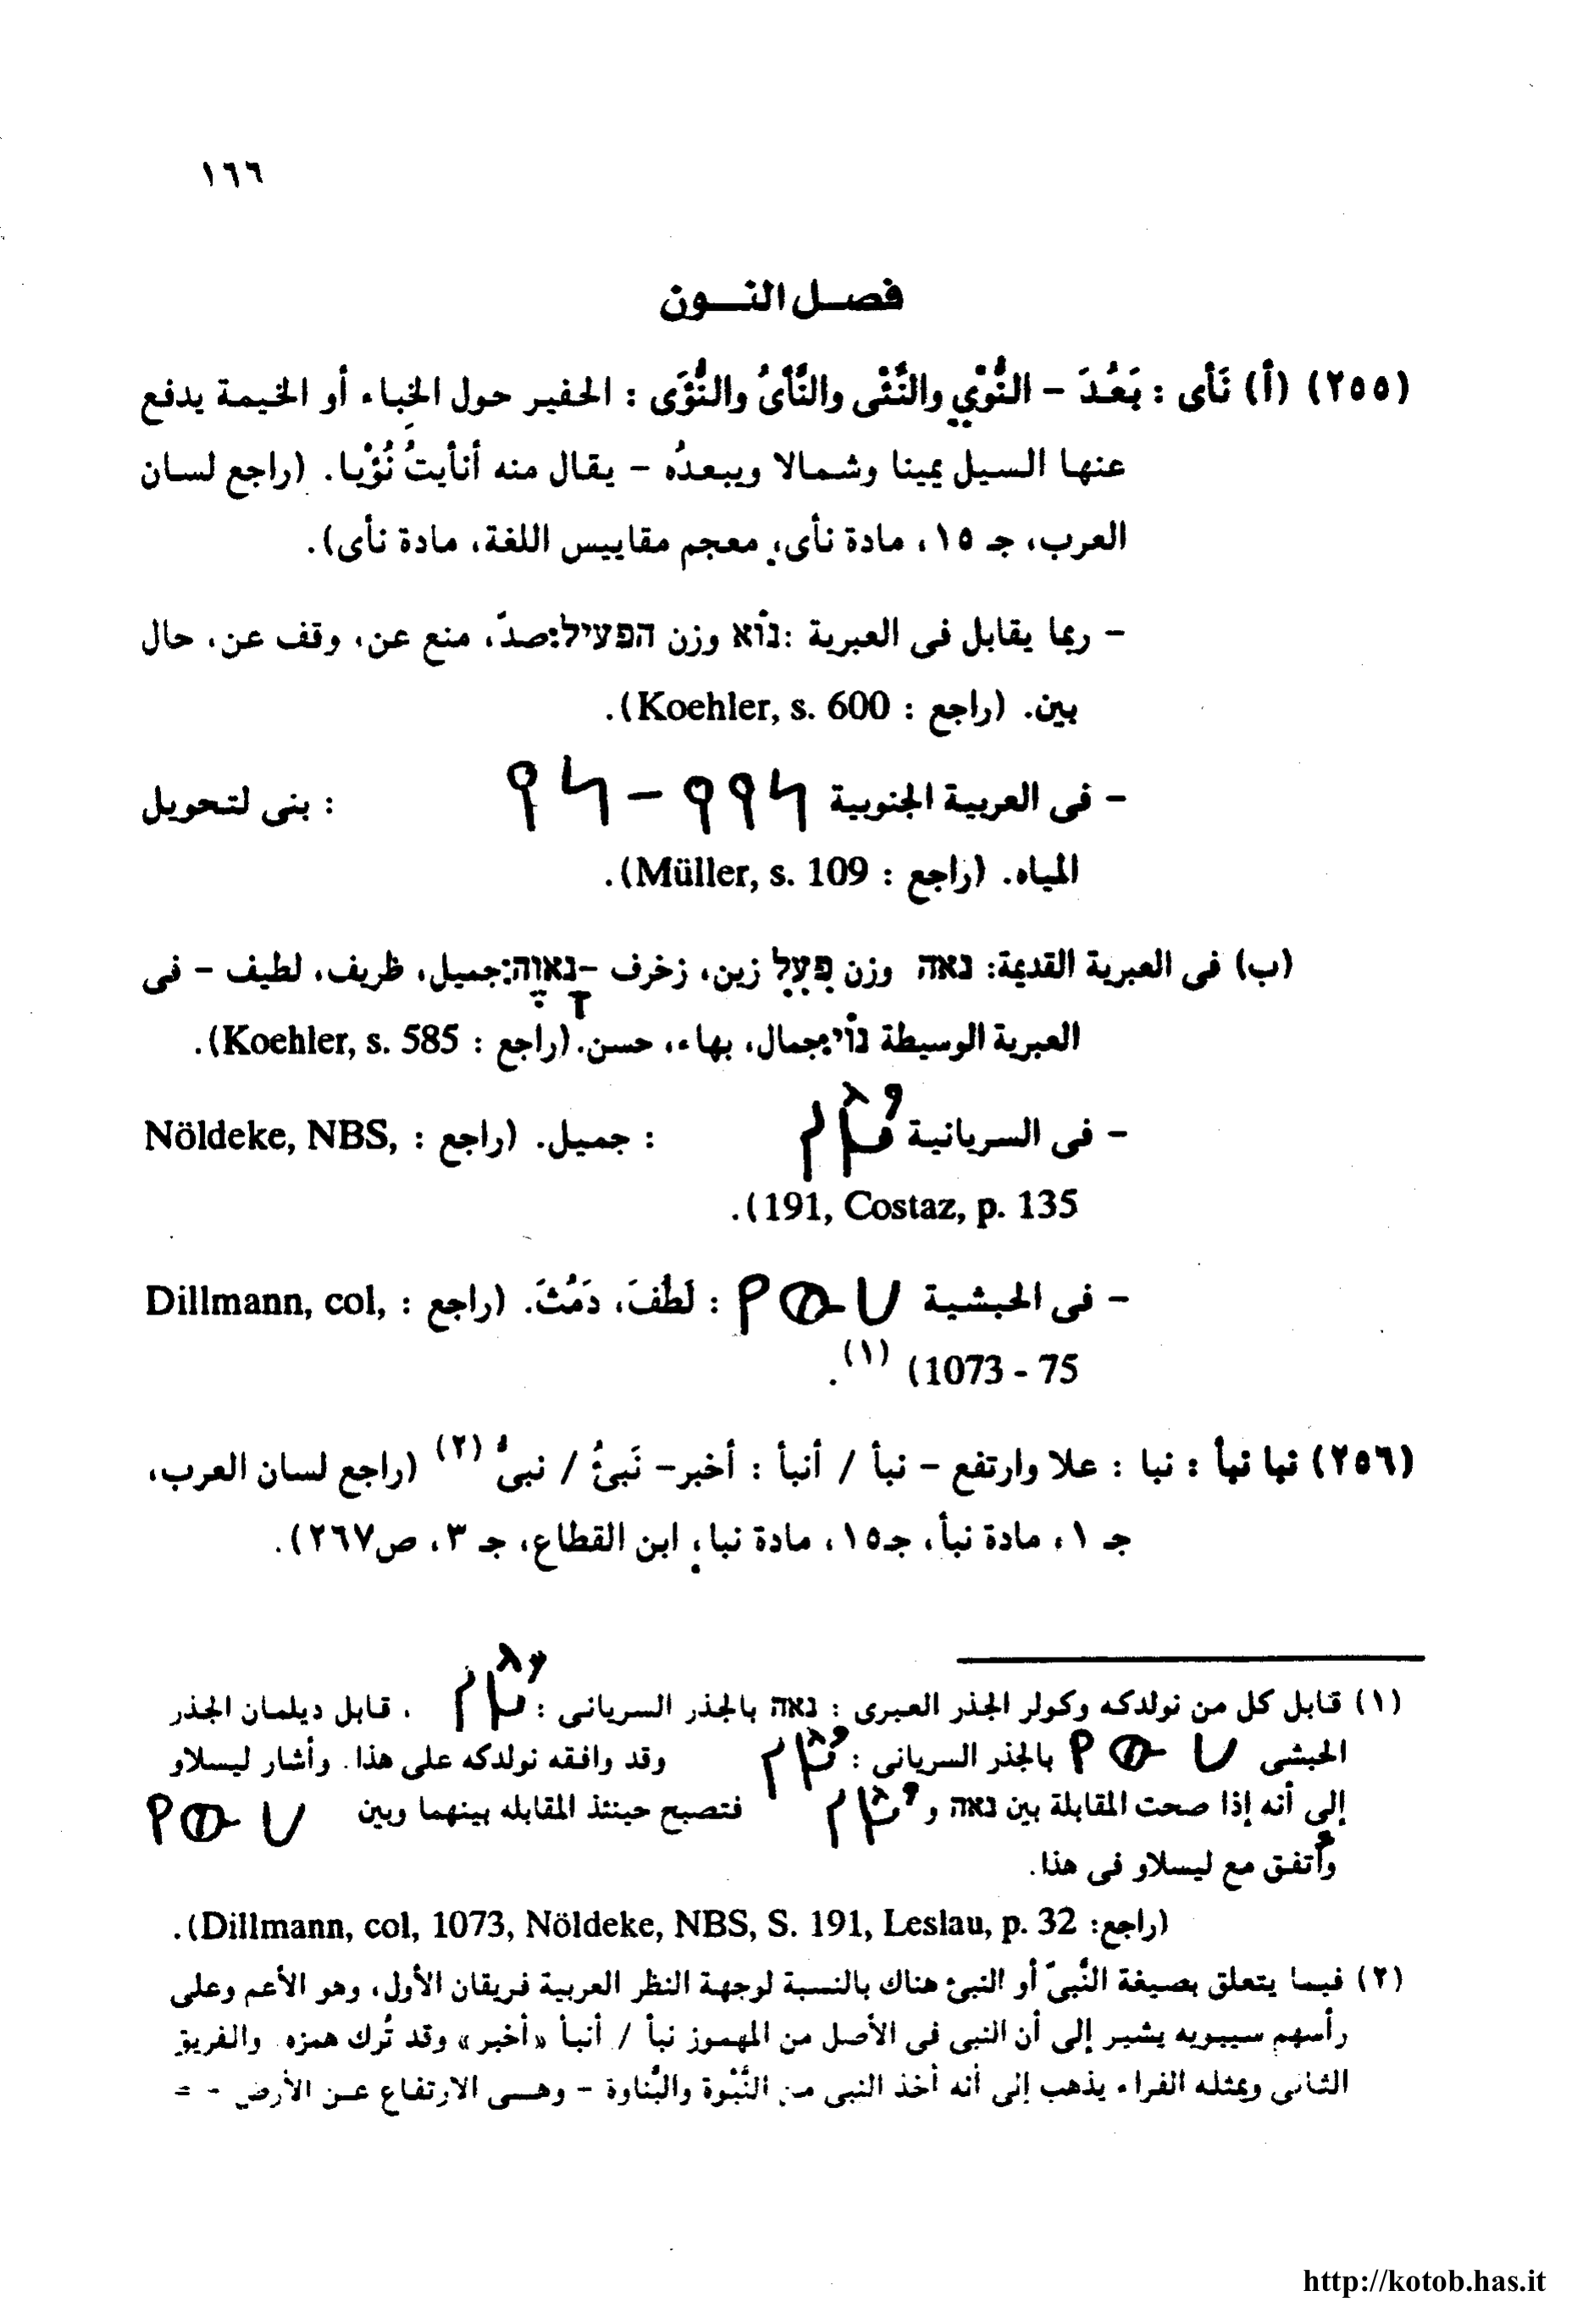 ١٦٦
فصل النون
(٢٥٥) (أ) نَأى : بَعُدَ - النُّؤْي والنِّئْى والنَّأىُ والنُّؤَى : الحفير حول الخباء أو الخيمة يدفع
عنها السيل يمينا وشمالا ويبعدُه - يقال منه أنأيتُ نُؤْيا. (راجع لسان
العرب، جـ ١٥، مادة نأى، معجم مقاييس اللغة، مادة نأى).
- ربما يقابل فى العبرية : נוֹא وزن הפעיל: صدّ، منع عن، وقف عن، حال
بين. (راجع : Koehler, s. 600).
- فى العربية الجنوبية : بنى لتحويل
المياه. (راجع : Müller, s. 109).
(ب) فى العبرية القديمة: נאה وزن פעל زين، زخرف - נָאוֶה: جميل، ظريف، لطيف - فى
العبرية الوسيطة נוֹי: جمال، بهاء، حسن. (راجع : Koehler, s. 585).
- فى السريانية : جميل. (راجع : Nöldeke, NBS,
191, Costaz, p. 135).
- فى الحبشية : لَطُفَ، دَمُثَ. (راجع : Dillmann, col,
1073 - 75) (١).
(٢٥٦) نبا نبأ : نبا : علا وارتفع - نبأ / أنبأ : أخبر- نَبئُ / نبىُّ (٢) (راجع لسان العرب،
جـ ١، مادة نبأ، جـ١٥، مادة نبا، ابن القطاع، جـ ٣، ص٢٦٧).
(١) قابل كل من نولدكه وكولر الجذر العبرى : נאה بالجذر السريانى : . قابل ديلمان الجذر
الحبشى بالجذر السريانى : وقد وافقه نولدكه على هذا. وأشار ليسلاو
إلى أنه إذا صحت المقابلة بين נאה و فتصبح حينئذ المقابله بينهما وبين
وأتفق مع ليسلاو فى هذا.
(راجع: Dillmann, col, 1073, Nöldeke, NBS, S. 191, Leslau, p. 32).
(٢) فيما يتعلق بصيغة النَّبىّ أو النبئ هناك بالنسبة لوجهة النظر العربية فريقان الأول، وهو الأعم وعلى
رأسهم سيبويه يشير إلى أن النبى فى الأصل من المهموز نبأ / أنبأ «أخبر» وقد تُرك همزه. والفريق
الثانى ويمثله الفراء يذهب إلى أنه أخذ النبى من النَّبْوة والنَّباوة - وهى الارتفاع عن الأرض - =
http://kotob.has.it